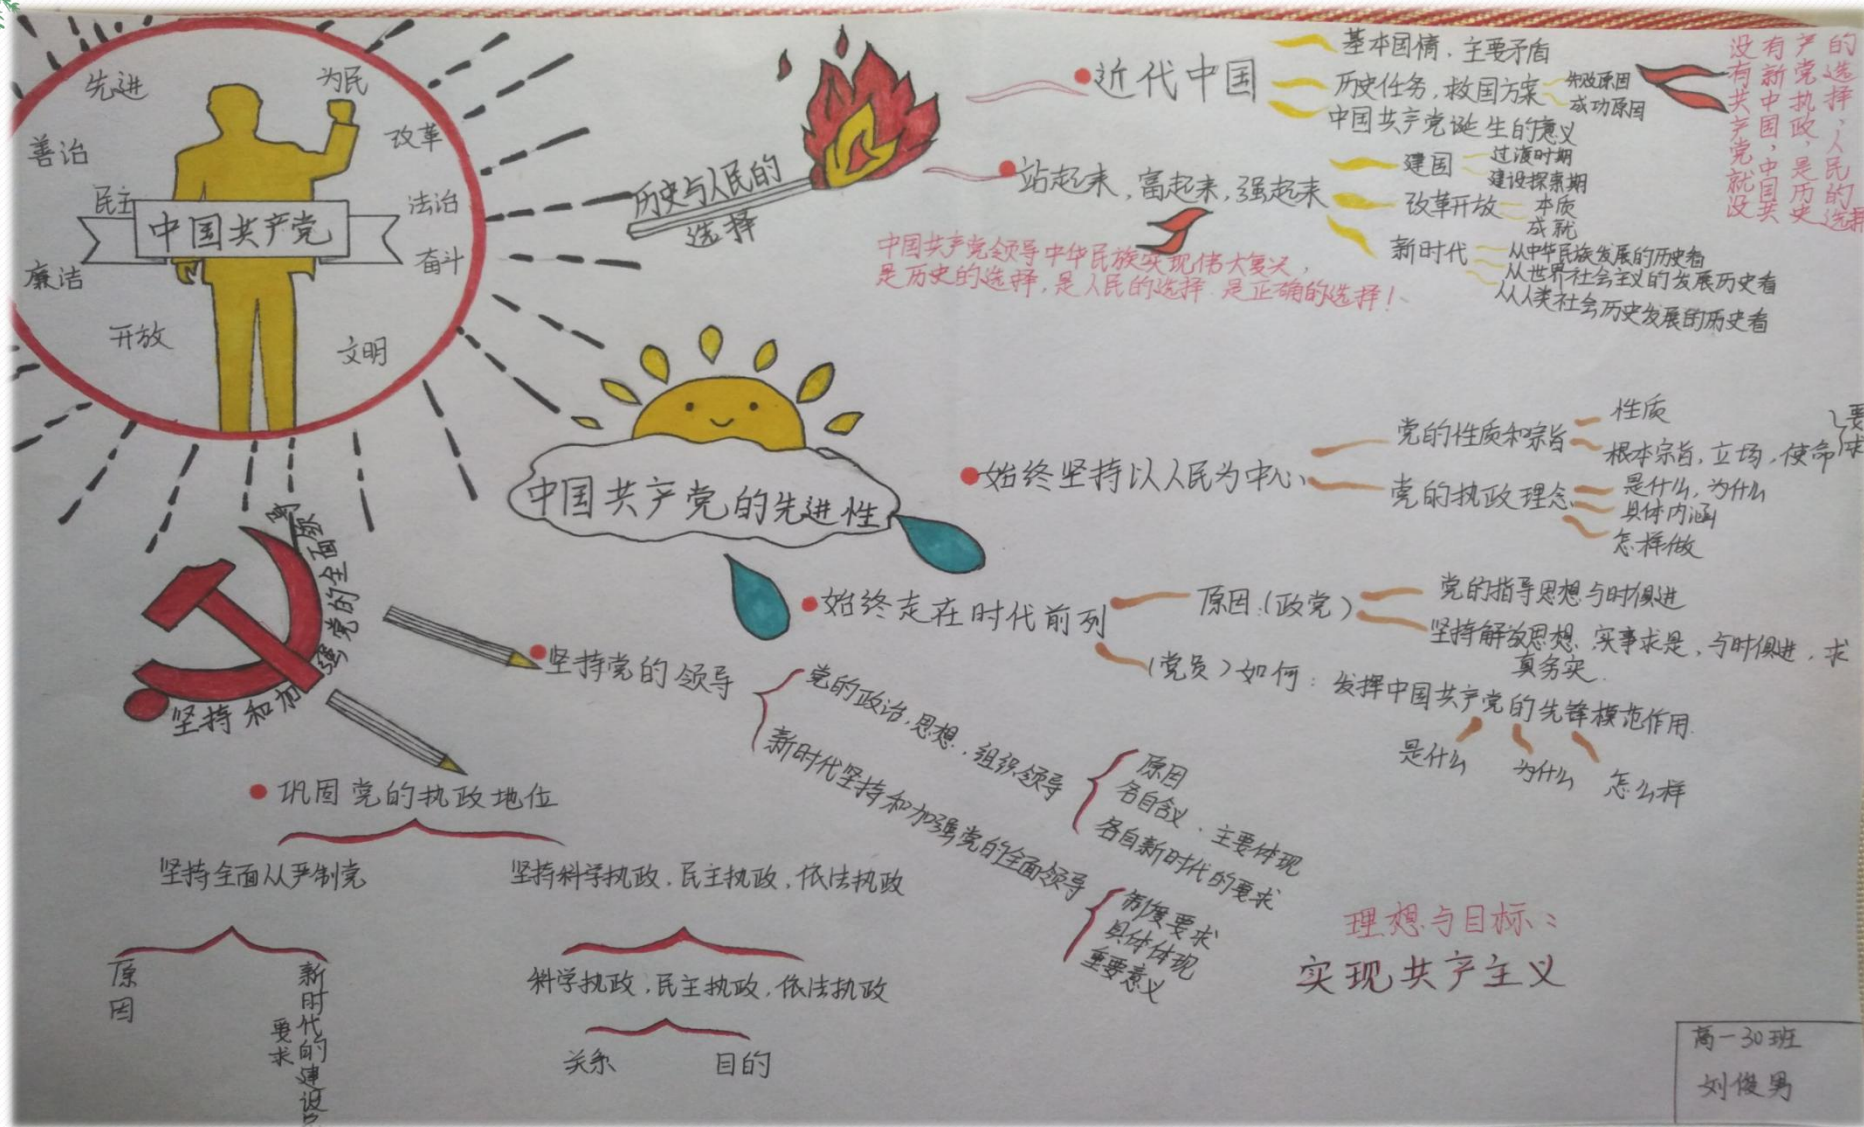 先进
为民
善治
改革
民主
法治
中国共产党
廉洁
奋斗
开放
文明
历史与人民的
选择
近代中国
基本国情、主要矛盾
历史任务，救国方案
失败原因
成功原因
中国共产党诞生的意义
没有共产党就没
有新中国，中国共
产党执政，是历史
的选择，人民的选择
站起来，富起来，强起来
建国
过渡时期
建设探索期
改革开放
本质
成就
新时代
从中华民族发展的历史看
从世界社会主义的发展历史看
从人类社会历史发展的历史看
中国共产党领导中华民族实现伟大复兴，
是历史的选择，是人民的选择 是正确的选择！
中国共产党的先进性
始终坚持以人民为中心
党的性质和宗旨
性质
根本宗旨，立场，使命
要求
党的执政理念
是什么，为什么
具体内涵
怎样做
始终走在时代前列
原因（政党）
党的指导思想与时俱进
坚持解放思想、实事求是，与时俱进，求
真务实
（党员）如何：发挥中国共产党的先锋模范作用
是什么
为什么
怎么样
坚持和加强党的全面领导
坚持党的领导
党的政治，思想，组织领导
原因
各自含义、主要体现
各自新时代的要求
新时代坚持和加强党的全面领导
制度要求
具体体现
重要意义
巩固党的执政地位
坚持全面从严制党
原因
新时代的建设
要求
坚持科学执政，民主执政，依法执政
科学执政，民主执政，依法执政
关系
目的
理想与目标：
实现共产主义
高一30班
刘俊男